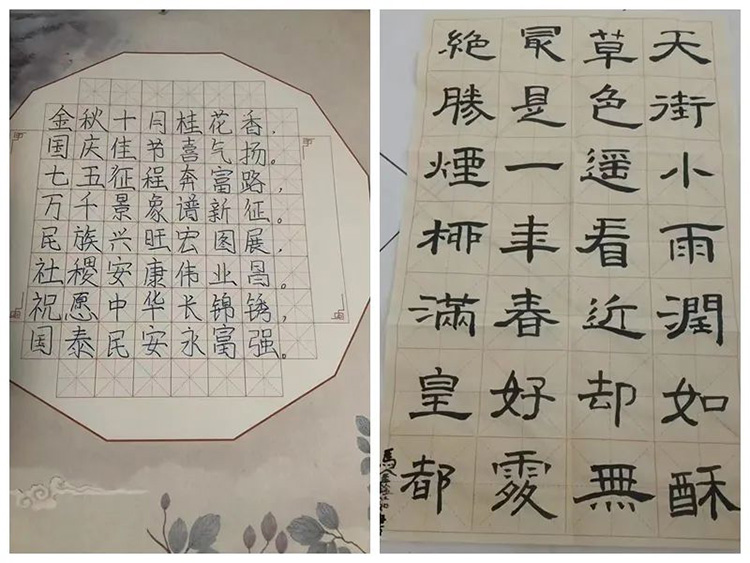 金秋十月桂花香，
国庆佳节喜气扬。
七五征程奔富路，
万千景象谱新征。
民族兴旺宏图展，
社稷安康伟业昌。
祝愿中华长锦锈，
国泰民安永富强。
天街小雨潤如酥
草色遥看近却無
最是一年春好處
絶勝煙柳滿皇都